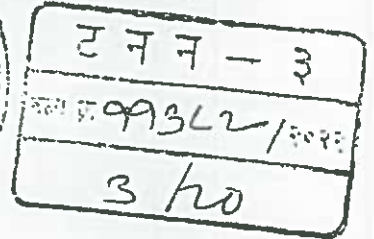 ट न न - ३
११३८२/
३ /२०